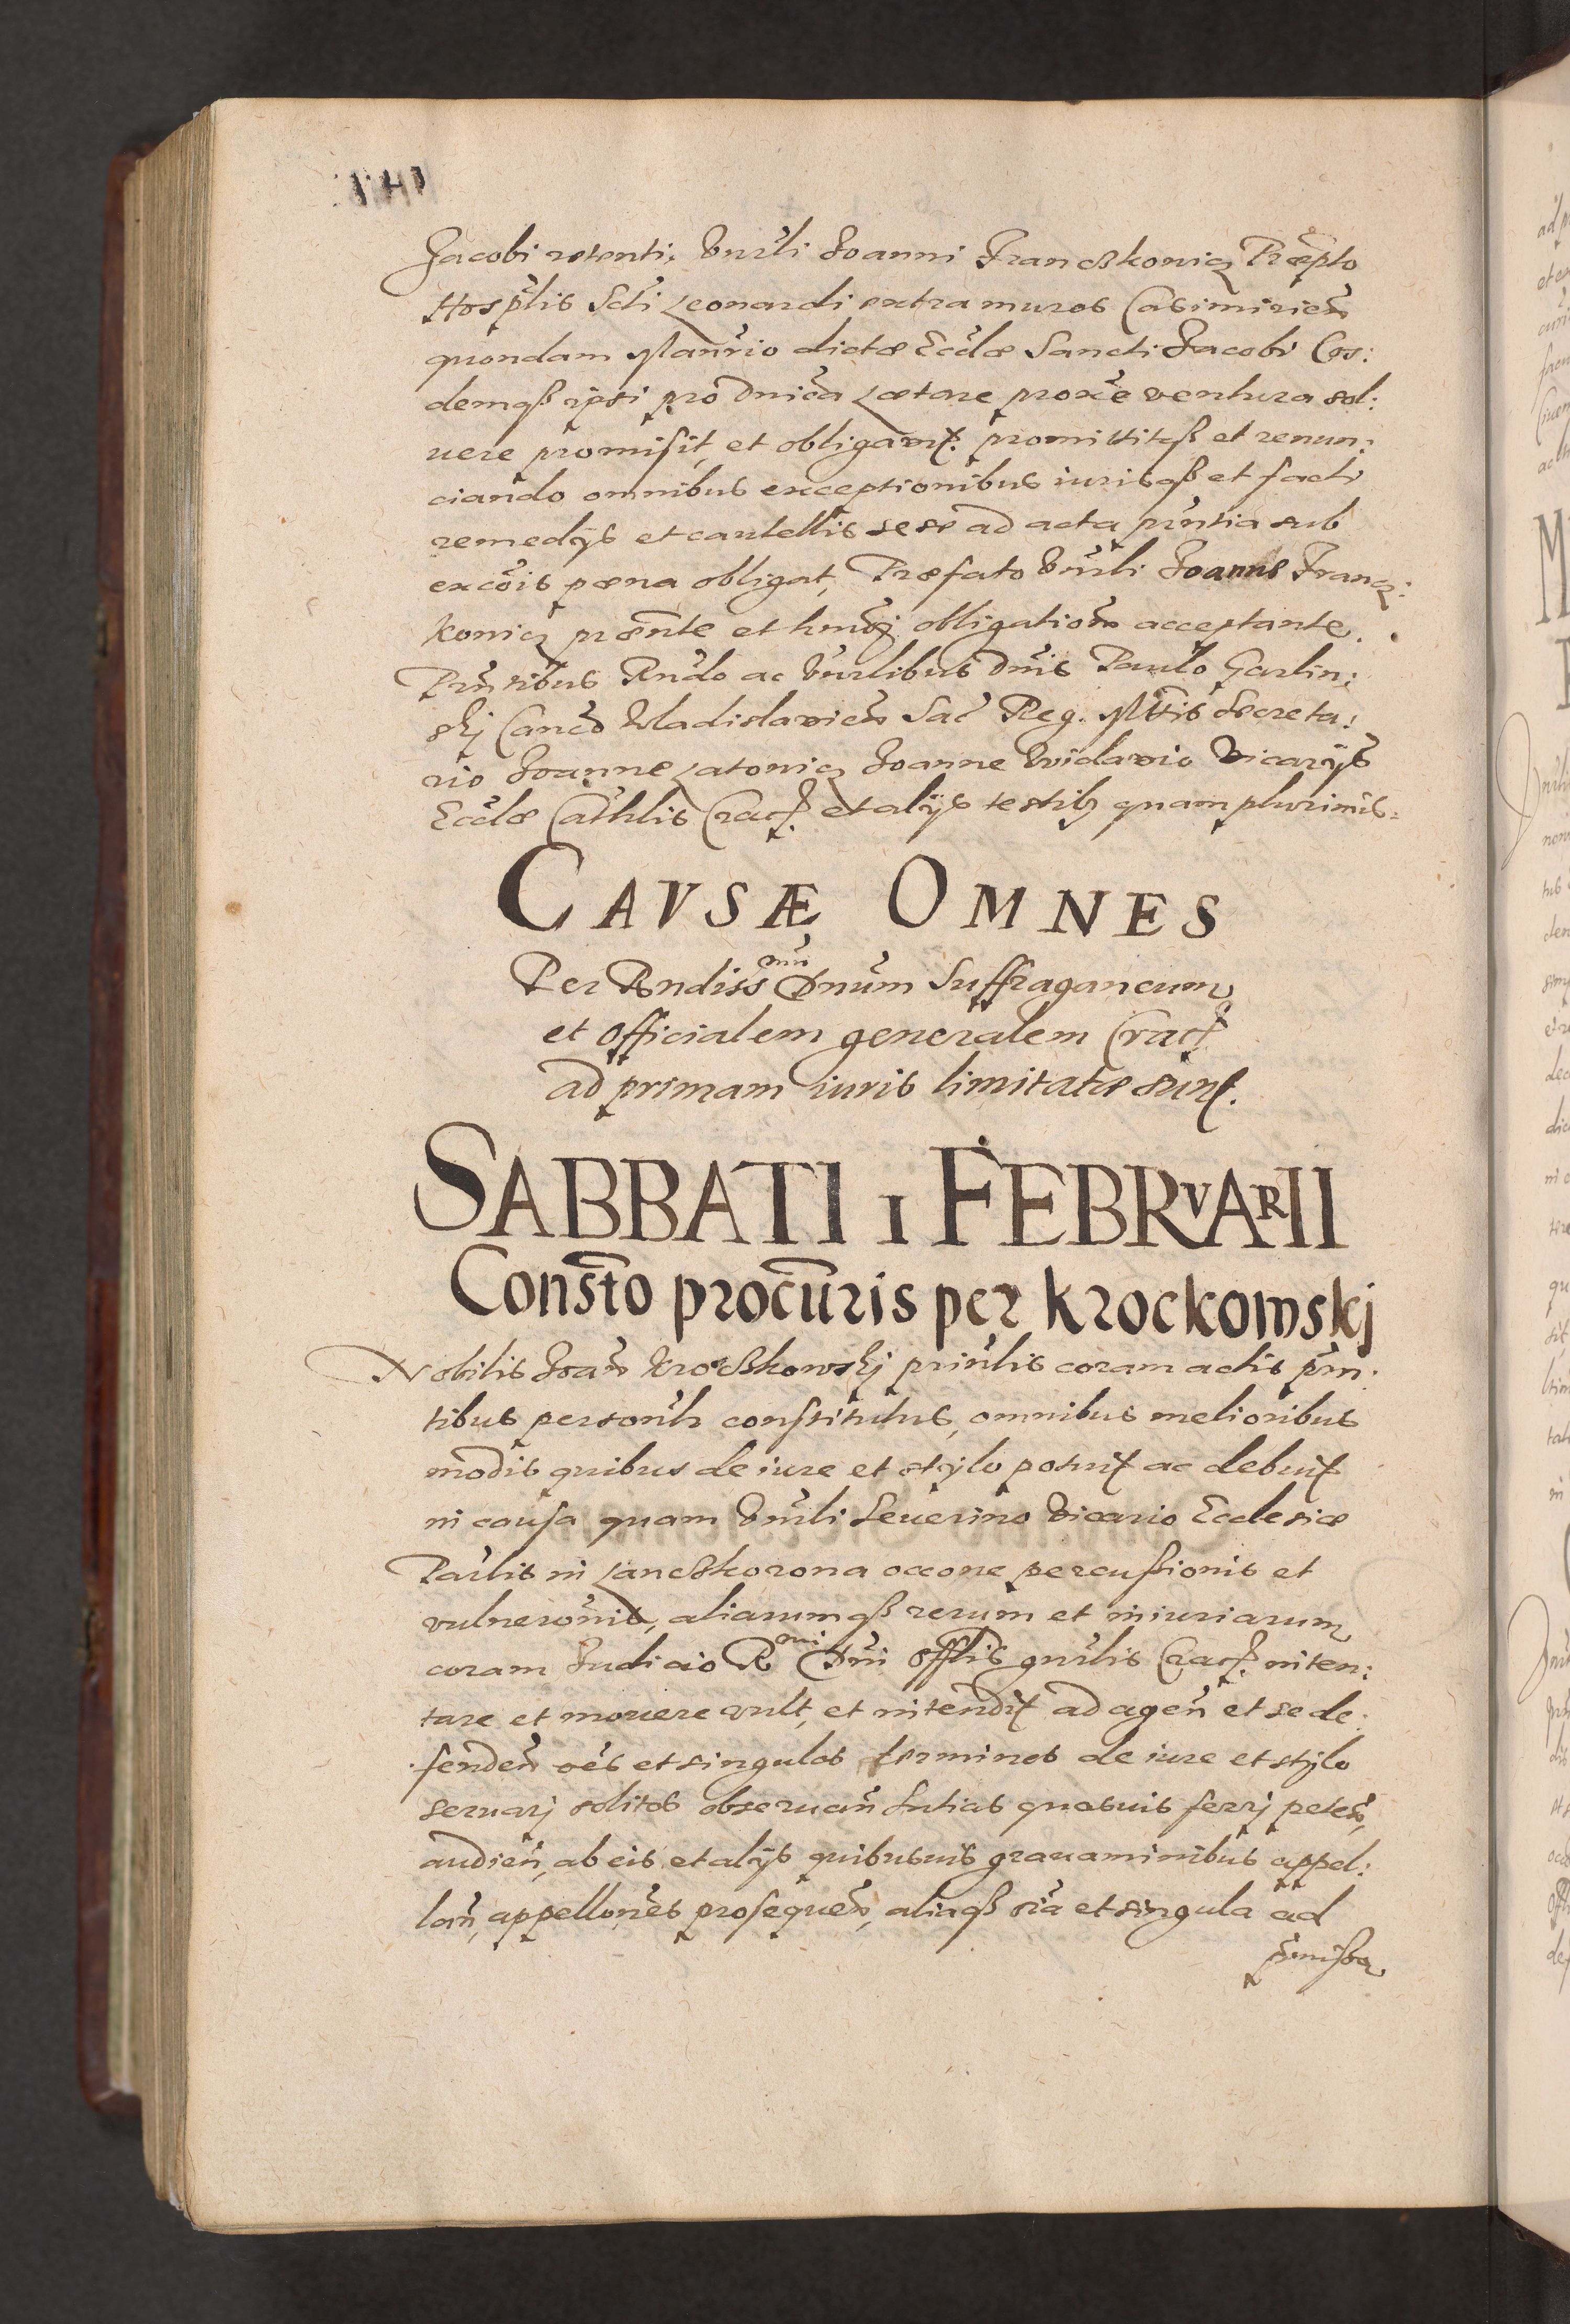 Jacobi retenti. Vnrli Joanni Francskowicz Praepto
Hosplis Scti Leonardi extra muros Casimirien
quondam Mansrio dictae Ecclae Sancti Jacobi Eos:
demq̃ ipsi pro Dnica Laetare proxe ventura sol:
uere promisit, et obligavit. promittitq̃ et renun:
ciando omnibus exceptionibus iurisq̃ et facti
remedijs et cautellis sese ad acta pntia sub
excois poena obligat, Praefato Vnrli Joanne Francz:
kowicz praente et hmoi obligationem acceptante.
Pntibus Rndo ac Vnrlibus Dnis Paulo Garlin:
skj Canco Wladislavien Sac Reg. Mttis Secreta:
rio Joanne Latowicz Joanne Widawio Vicarijs
Ecclae Cathlis Crac. et alijs testib quam plurimis.
CAVSÆ OMNES
Per Rndiss mu Dnum Suffraganeum
et Officialem generalem Crac
ad primam iuris limitatae sunt.
SABBATI 1 FEBRVARII
Consto procuris per Krockowskj
Nobilis Joan Krocskowskj prinlis coram actis pn:
tibus personlr constitutus, omnibus melioribus
modis quibus de iure et stylo potuit ac debuit
in causa quam Vnrli Seuerino Vicario Ecclesiae
Parlis in Lancskorona occone percussionis et
vulneronis, aliarumq̃ rerum et iniuriarum
coram Judicio R mi Dni Offlis gnrlis Crac. inten:
tare et mouere vult, et intendit ad agen et se de:
fenden oes et singulos terminos de iure et stylo
seruarj solitos obseruan sntias quasuis ferrj peten,
audien, ab eis et alijs quibusuis grauaminibus appel:
lan, appellones prosequen, aliaq̃ oia et singula ad
pmissa